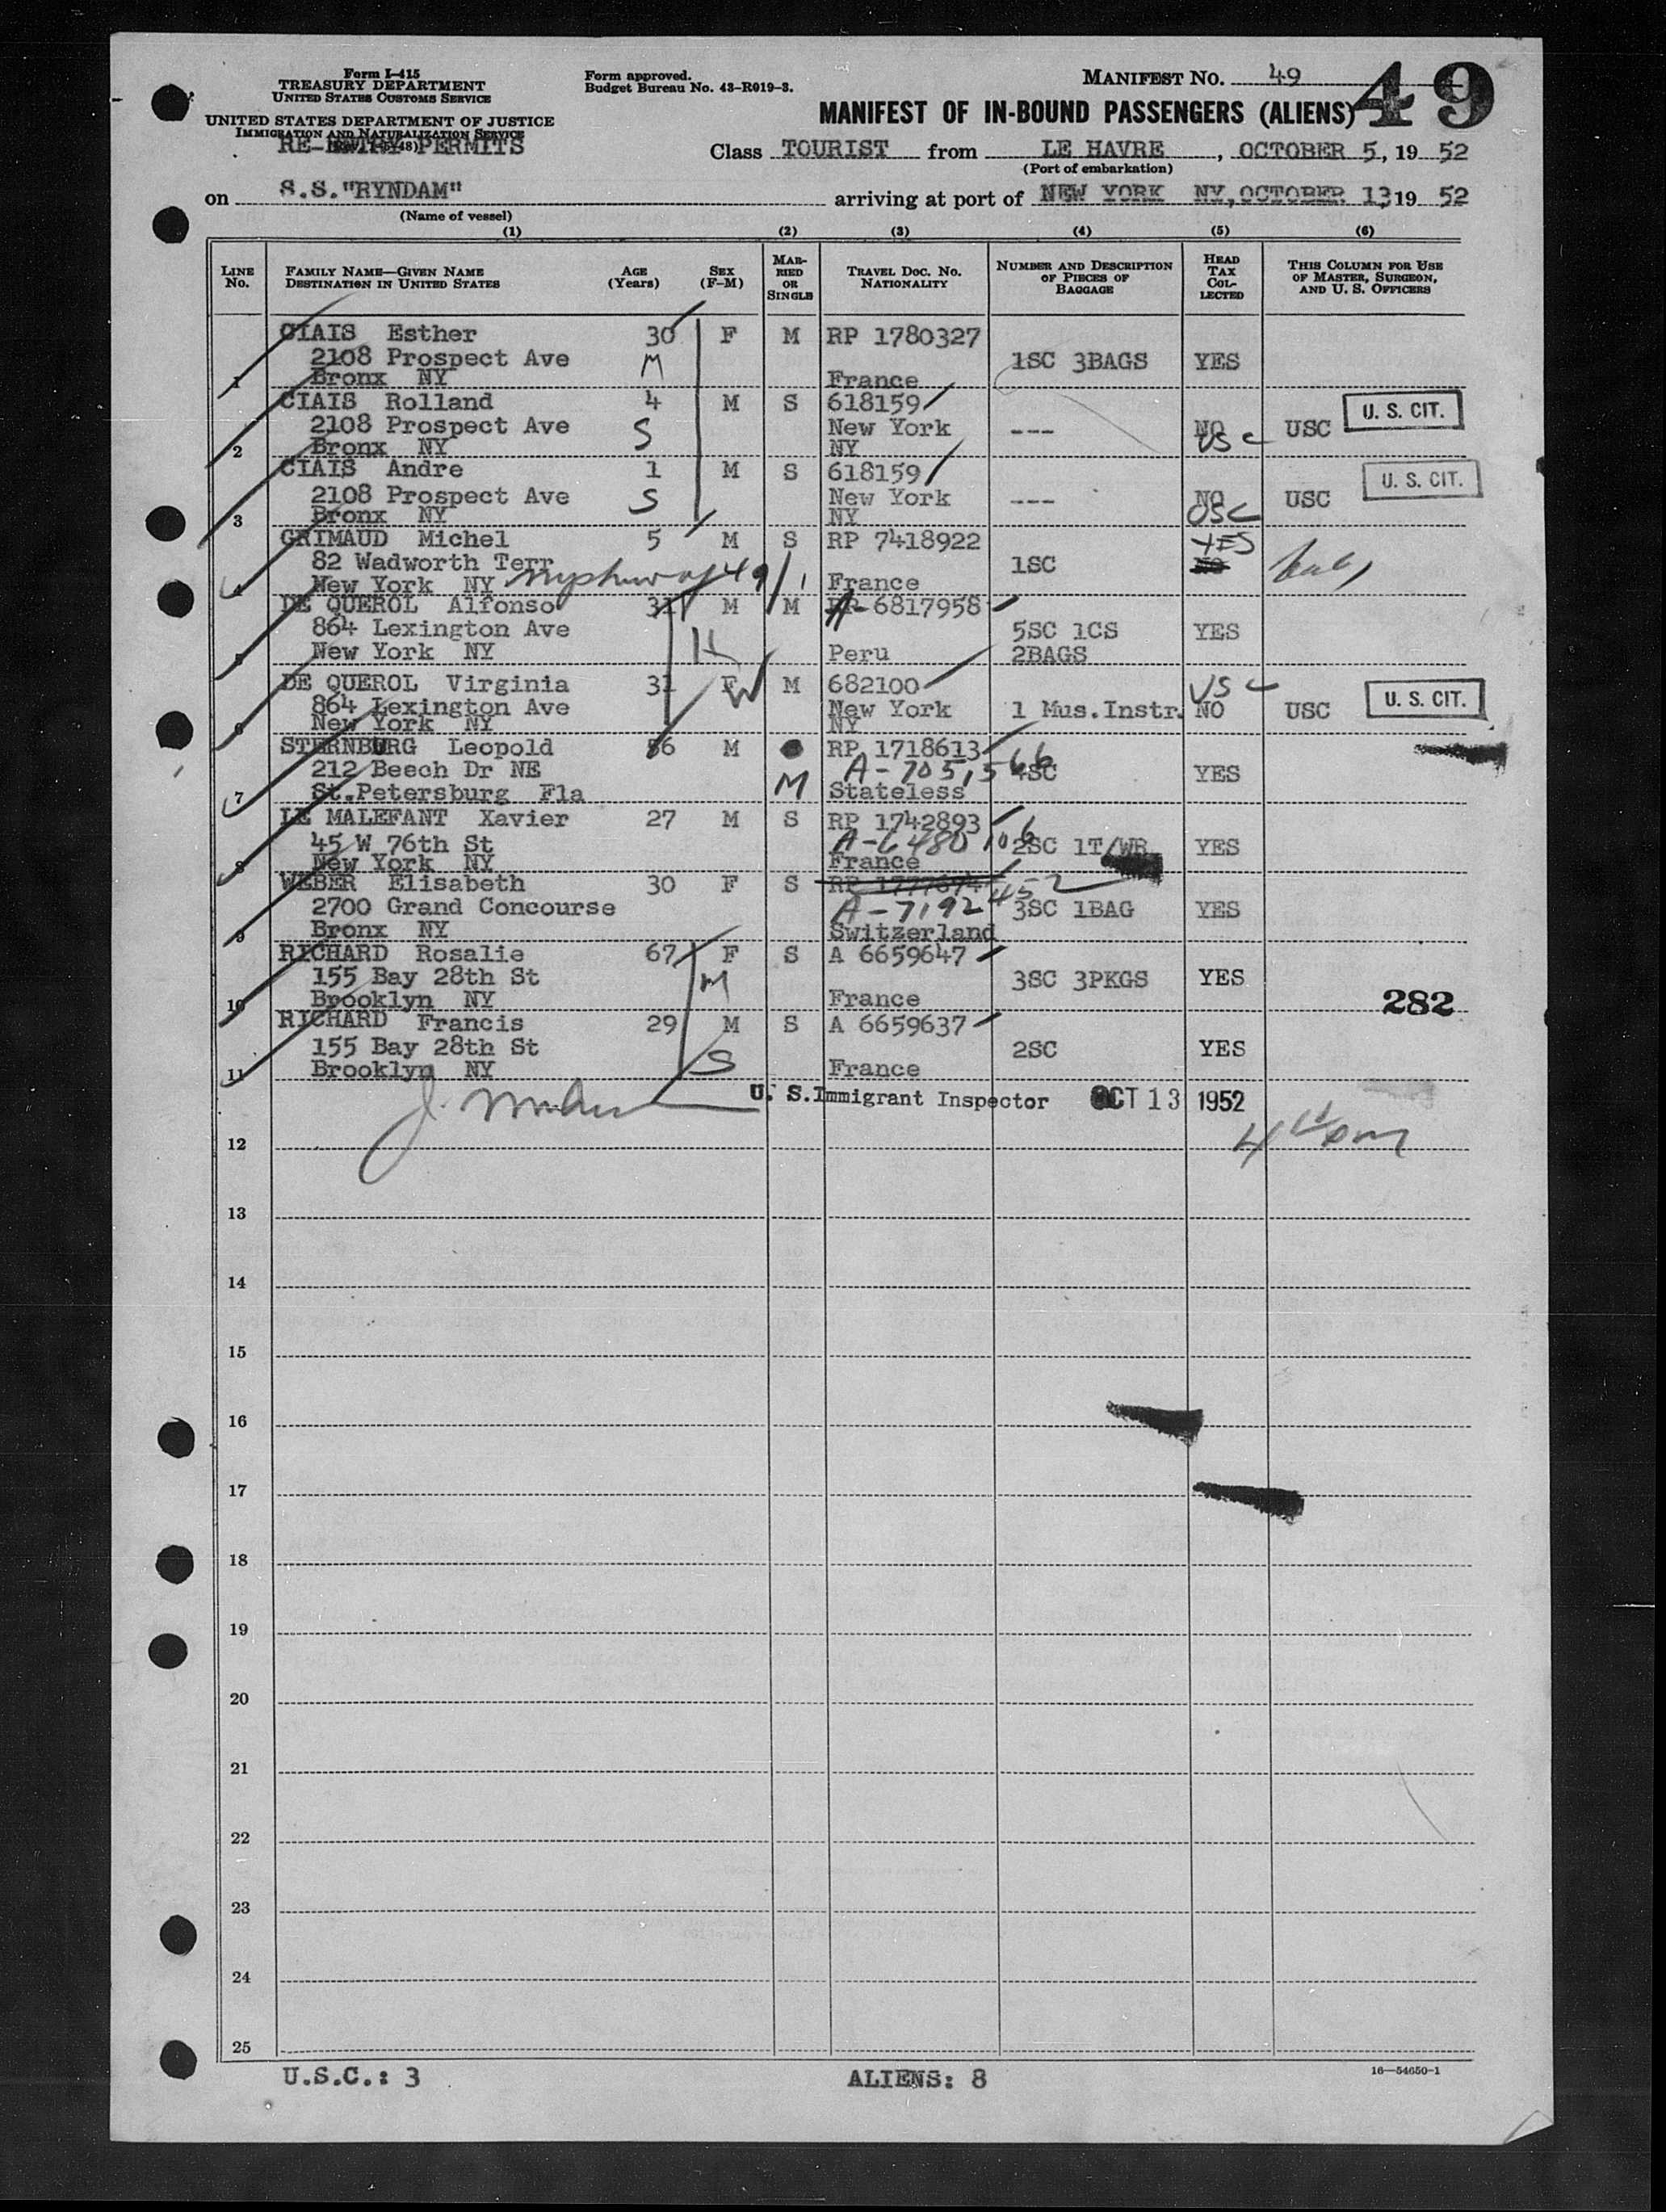 Form I-415
TREASURY DEPARTMENT
UNITED STATES CUSTOMS SERVICE
UNITED STATES DEPARTMENT OF JUSTICE
IMMIGRATION AND NATURALIZATION SERVICE
RE-ENTRY PERMITS
Form approved.
Budget Bureau No. 43-R019-3.
MANIFEST NO. 49
49
MANIFEST OF IN-BOUND PASSENGERS (ALIENS)
Class TOURIST from LE HAVRE, OCTOBER 5, 1952
(Port of embarkation)
on S.S."RYNDAM" arriving at port of NEW YORK NY, OCTOBER 13 1952
(Name of vessel)
(1) (2) (3) (4) (5) (6)
LINE No. FAMILY NAME—GIVEN NAME DESTINATION IN UNITED STATES AGE (Years) SEX (F-M) MARRIED OR SINGLE TRAVEL DOC. NO. NATIONALITY NUMBER AND DESCRIPTION OF PIECES OF BAGGAGE HEAD TAX COLLECTED THIS COLUMN FOR USE OF MASTER, SURGEON, AND U. S. OFFICERS
CIAIS Esther 30 F M RP 1780327
2108 Prospect Ave M 1SC 3BAGS YES
1 Bronx NY France
CIAIS Rolland 4 M S 618159 U. S. CIT.
2108 Prospect Ave S New York --- NO USC USC
2 Bronx NY NY
CIAIS Andre 1 M S 618159 U. S. CIT.
2108 Prospect Ave S New York --- NO USC USC
3 Bronx NY NY
GRIMAUD Michel 5 M S RP 7418922 YES
82 Wadworth Terr 1SC NO
4 New York NY 49/1 France
DE QUEROL Alfonso 31 M M A- 6817958
864 Lexington Ave H 5SC 1CS YES
5 New York NY Peru 2BAGS
DE QUEROL Virginia 31 F W M 682100 USC U. S. CIT.
864 Lexington Ave New York 1 Mus.Instr. NO USC
6 New York NY NY
STERNBURG Leopold 56 M RP 1718613
212 Beech Dr NE A-705,566 4SC YES
7 St.Petersburg Fla M Stateless
LE MALEFANT Xavier 27 M S RP 1742893
45 W 76th St A-6480106 2SC 1T/WR YES
8 New York NY France
WEBER Elisabeth 30 F S RP 1777674
2700 Grand Concourse A-7192452 3SC 1BAG YES
9 Bronx NY Switzerland
RICHARD Rosalie 67 F S A 6659647
155 Bay 28th St M 3SC 3PKGS YES
10 Brooklyn NY France 282
RICHARD Francis 29 M S A 6659637
155 Bay 28th St S 2SC YES
11 Brooklyn NY France
U. S. Immigrant Inspector OCT 13 1952
12
13
14
15
16
17
18
19
20
21
22
23
24
25
U.S.C.: 3 ALIENS: 8 16—54650-1